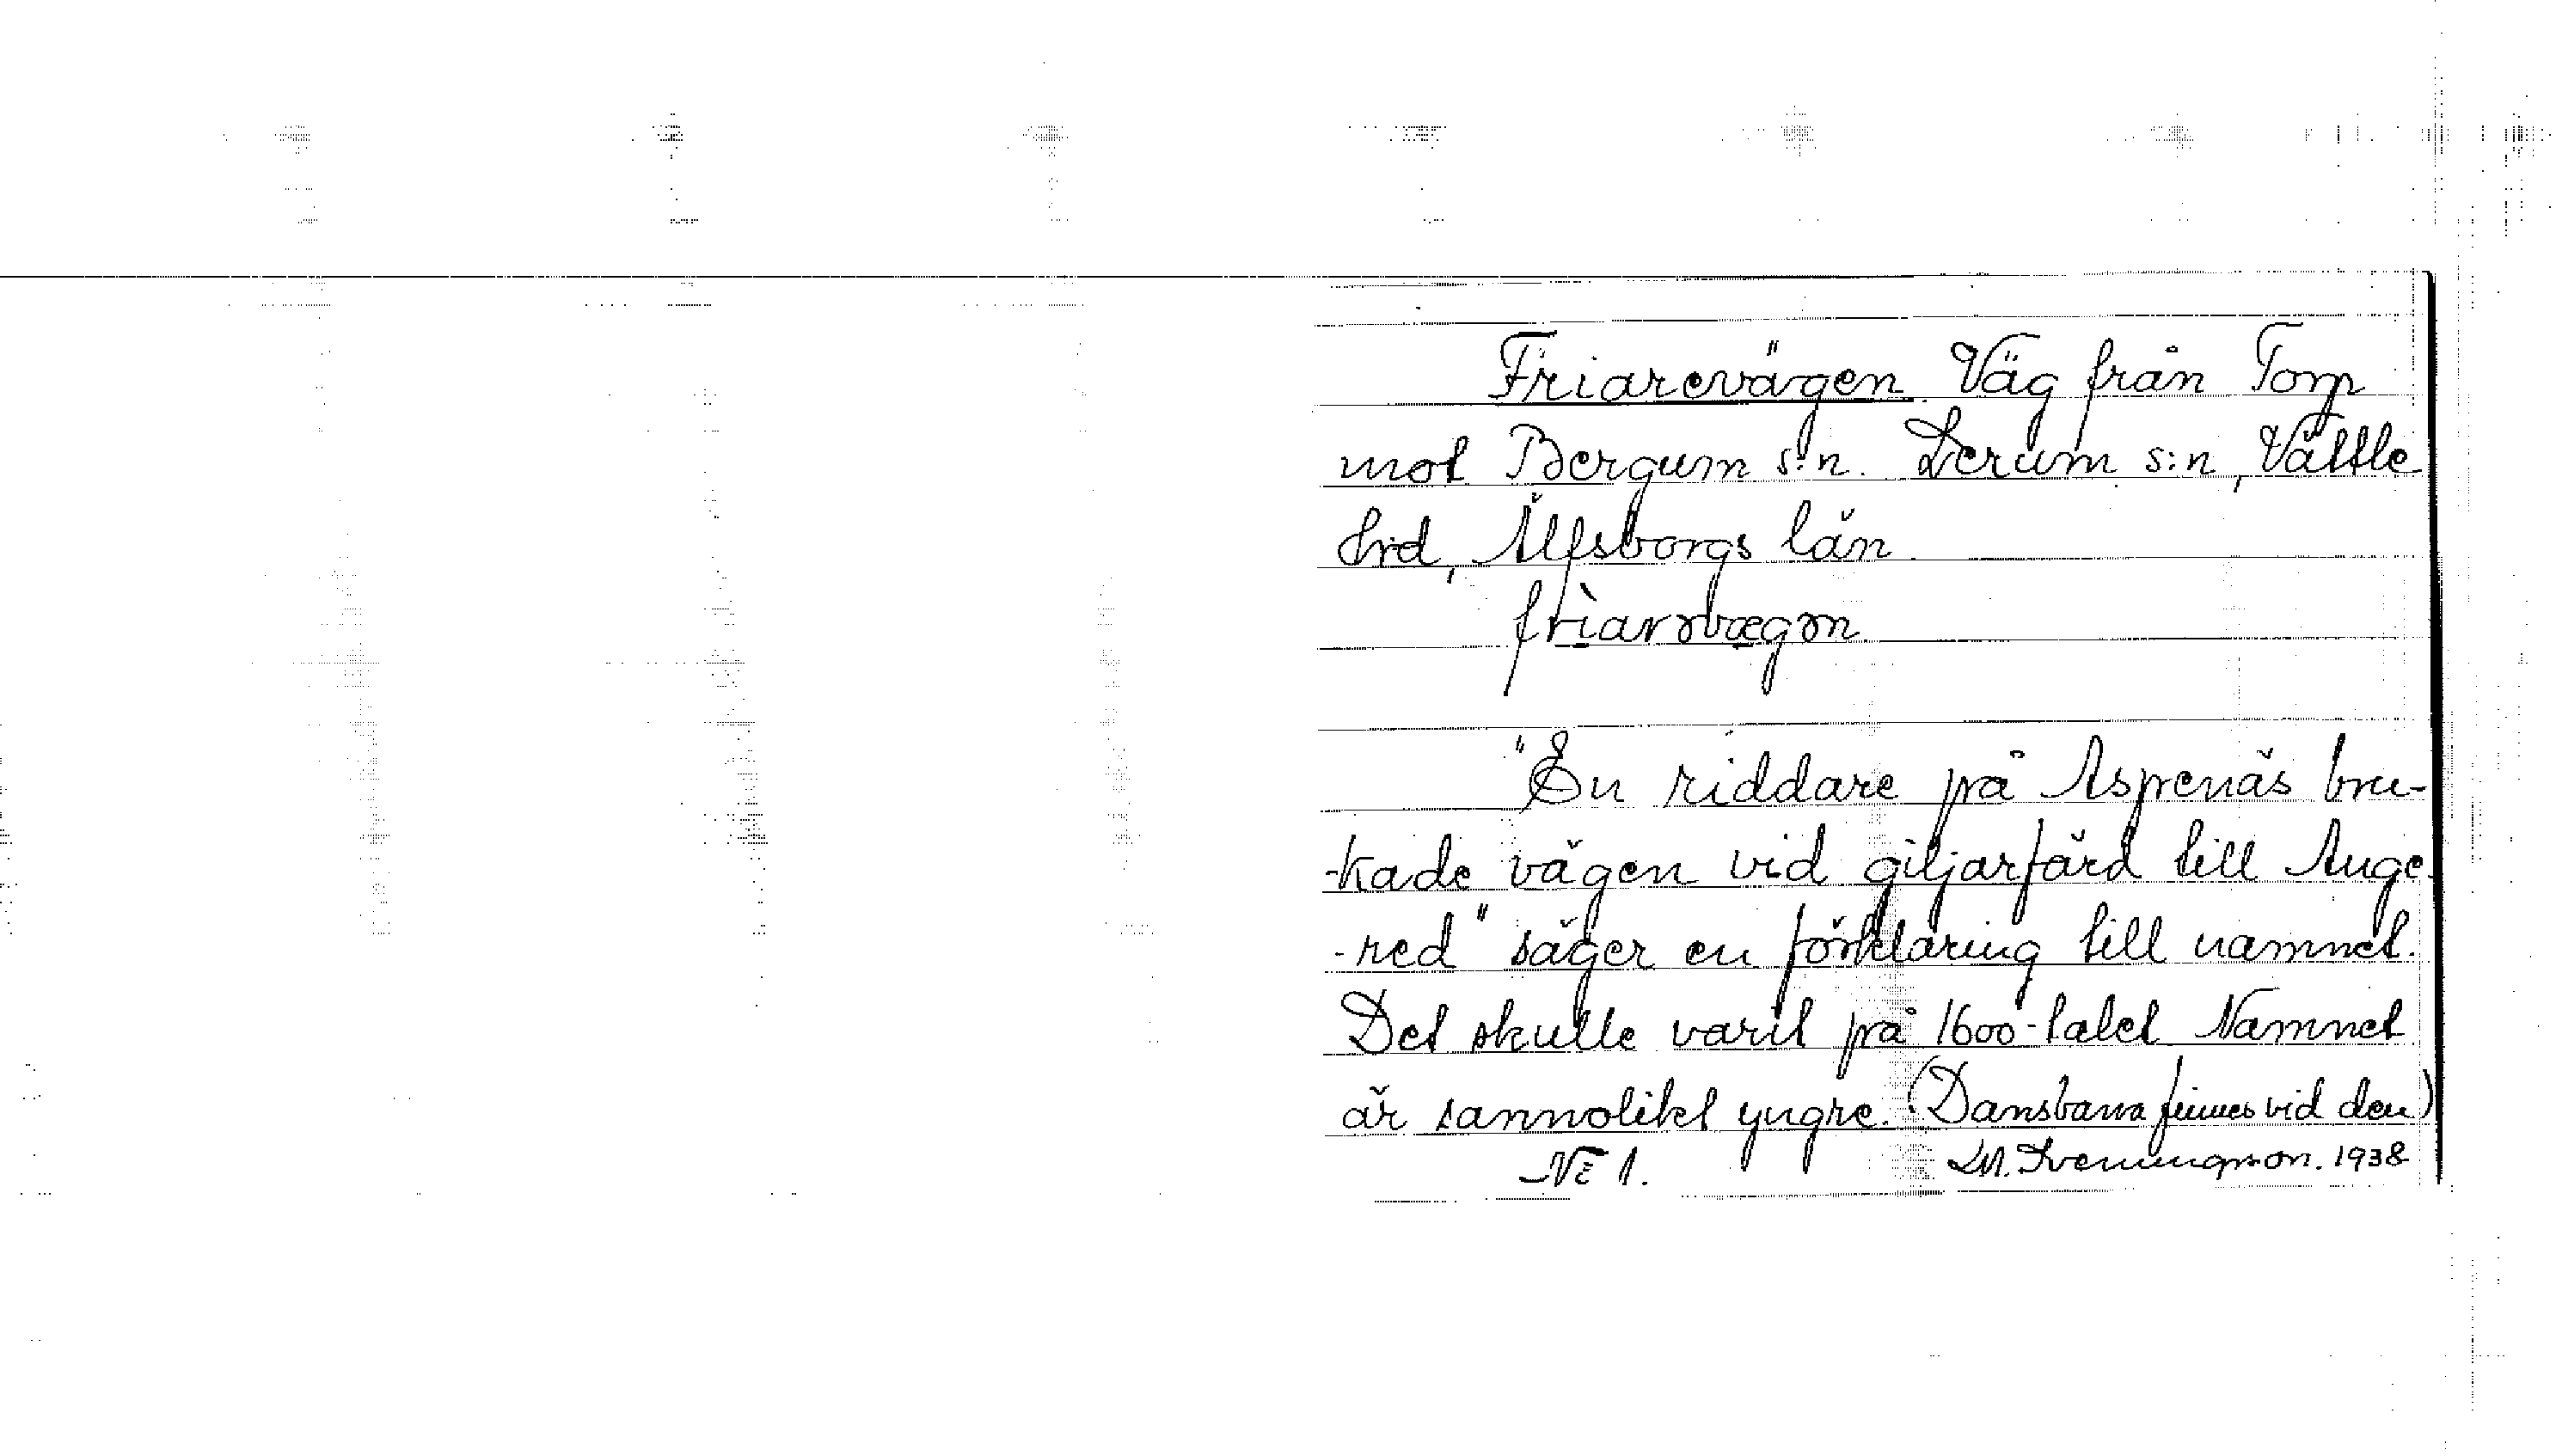 Friarevägen. Väg från Torp
mot Bergum s:n. Lerum s:n, Vättle
hrd, Älfsborgs län.
frìarəvægən
"En riddare på Aspenäs bru-
-kade vägen vid giljarfärd till Ange-
-red" säger en förklaring till namnet.
Det skulle varit på 1600-talet. Namnet
är sannolikt yngre. (Dansbana finnes vid den)
NE 1. 1938